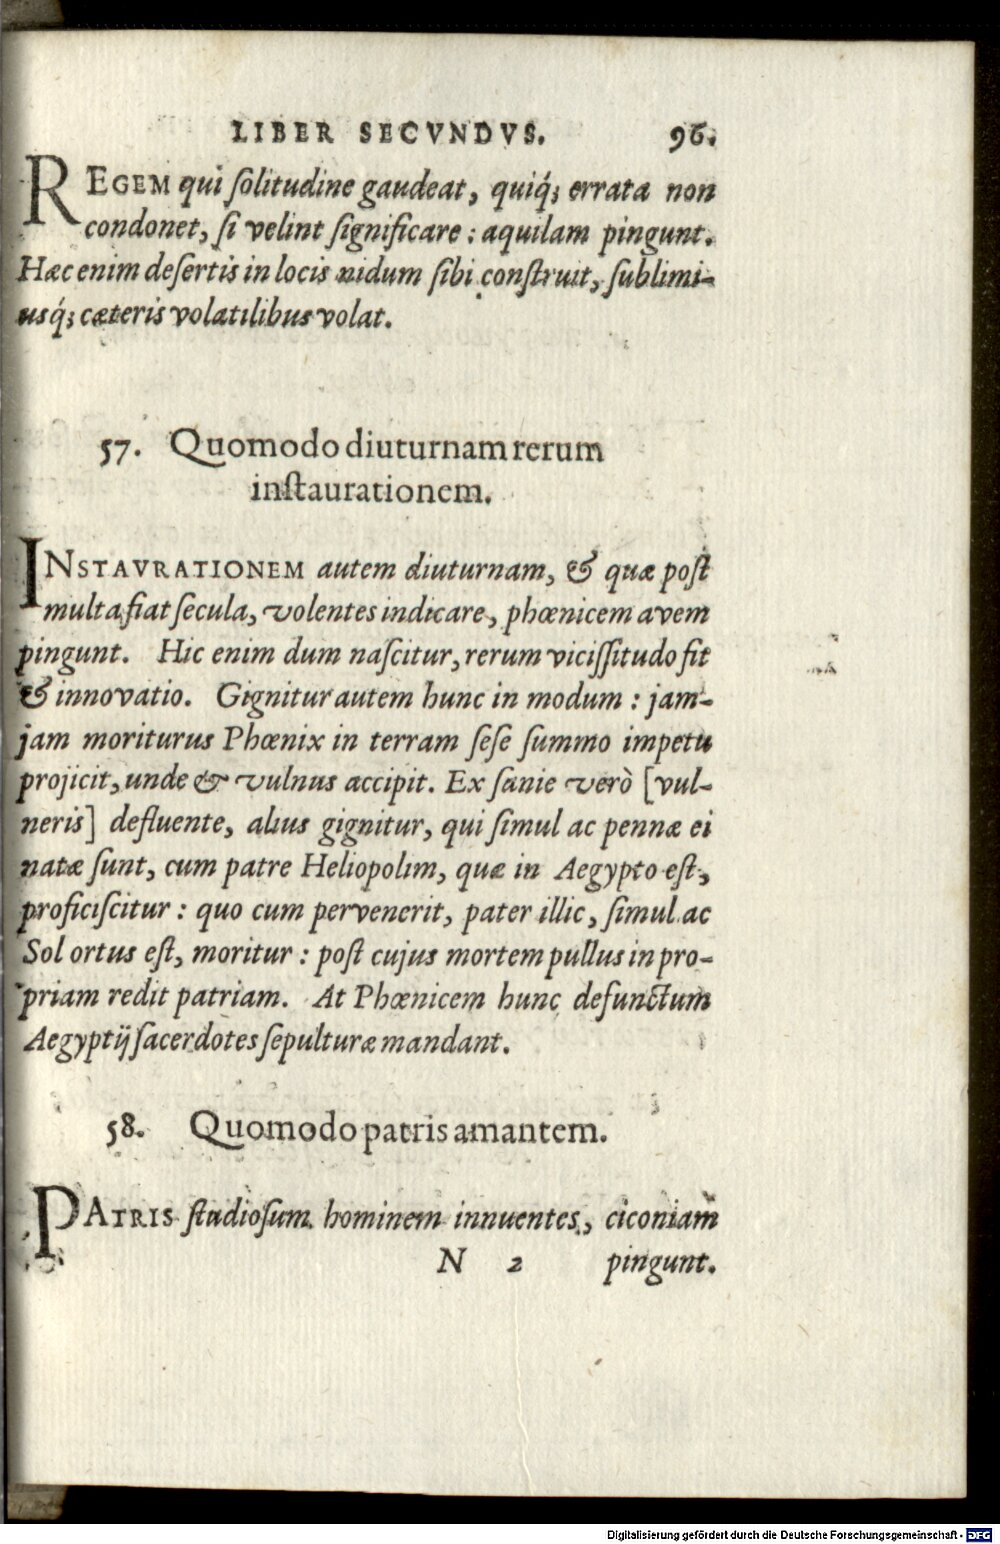 LIBER SECVNDVS. 96.
REGEM qui ſolitudine gaudeat, quiq́; errata non
condonet, ſi velint ſignificare : aquilam pingunt.
Hæc enim deſertis in locis nidum ſibi conſtruit, ſublimi-
usq́; cæteris volatilibus volat.
57. Quomodo diuturnam rerum
inſtaurationem.
INSTAVRATIONEM autem diuturnam, & quæ poſt
multa fiat ſecula, volentes indicare, phœnicem avem
pingunt. Hic enim dum naſcitur, rerum viciſſitudo fit
& innovatio. Gignitur autem hunc in modum : jam-
jam moriturus Phœnix in terram ſeſe ſummo impetu
projicit, unde & vulnus accipit. Ex ſanie verò [vul-
neris] defluente, alius gignitur, qui ſimul ac pennæ ei
natæ ſunt, cum patre Heliopolim, quæ in Aegypto eſt,
proficiſcitur : quo cum pervenerit, pater illic, ſimul ac
Sol ortus eſt, moritur : poſt cujus mortem pullus in pro-
priam redit patriam. At Phœnicem hunc defunctum
Aegyptij ſacerdotes ſepulturæ mandant.
58. Quomodo patris amantem.
PATRIS ſtudioſum hominem innuentes, ciconiam
N 2 pingunt.
Digitalisierung gefördert durch die Deutsche Forschungsgemeinschaft - DFG